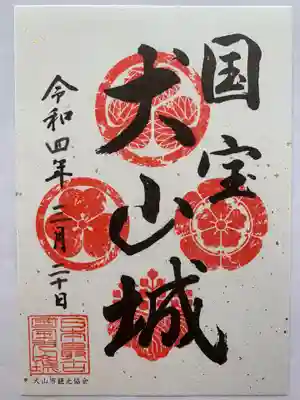 国宝
犬山城
令和四年二月二十日
犬山市観光協会